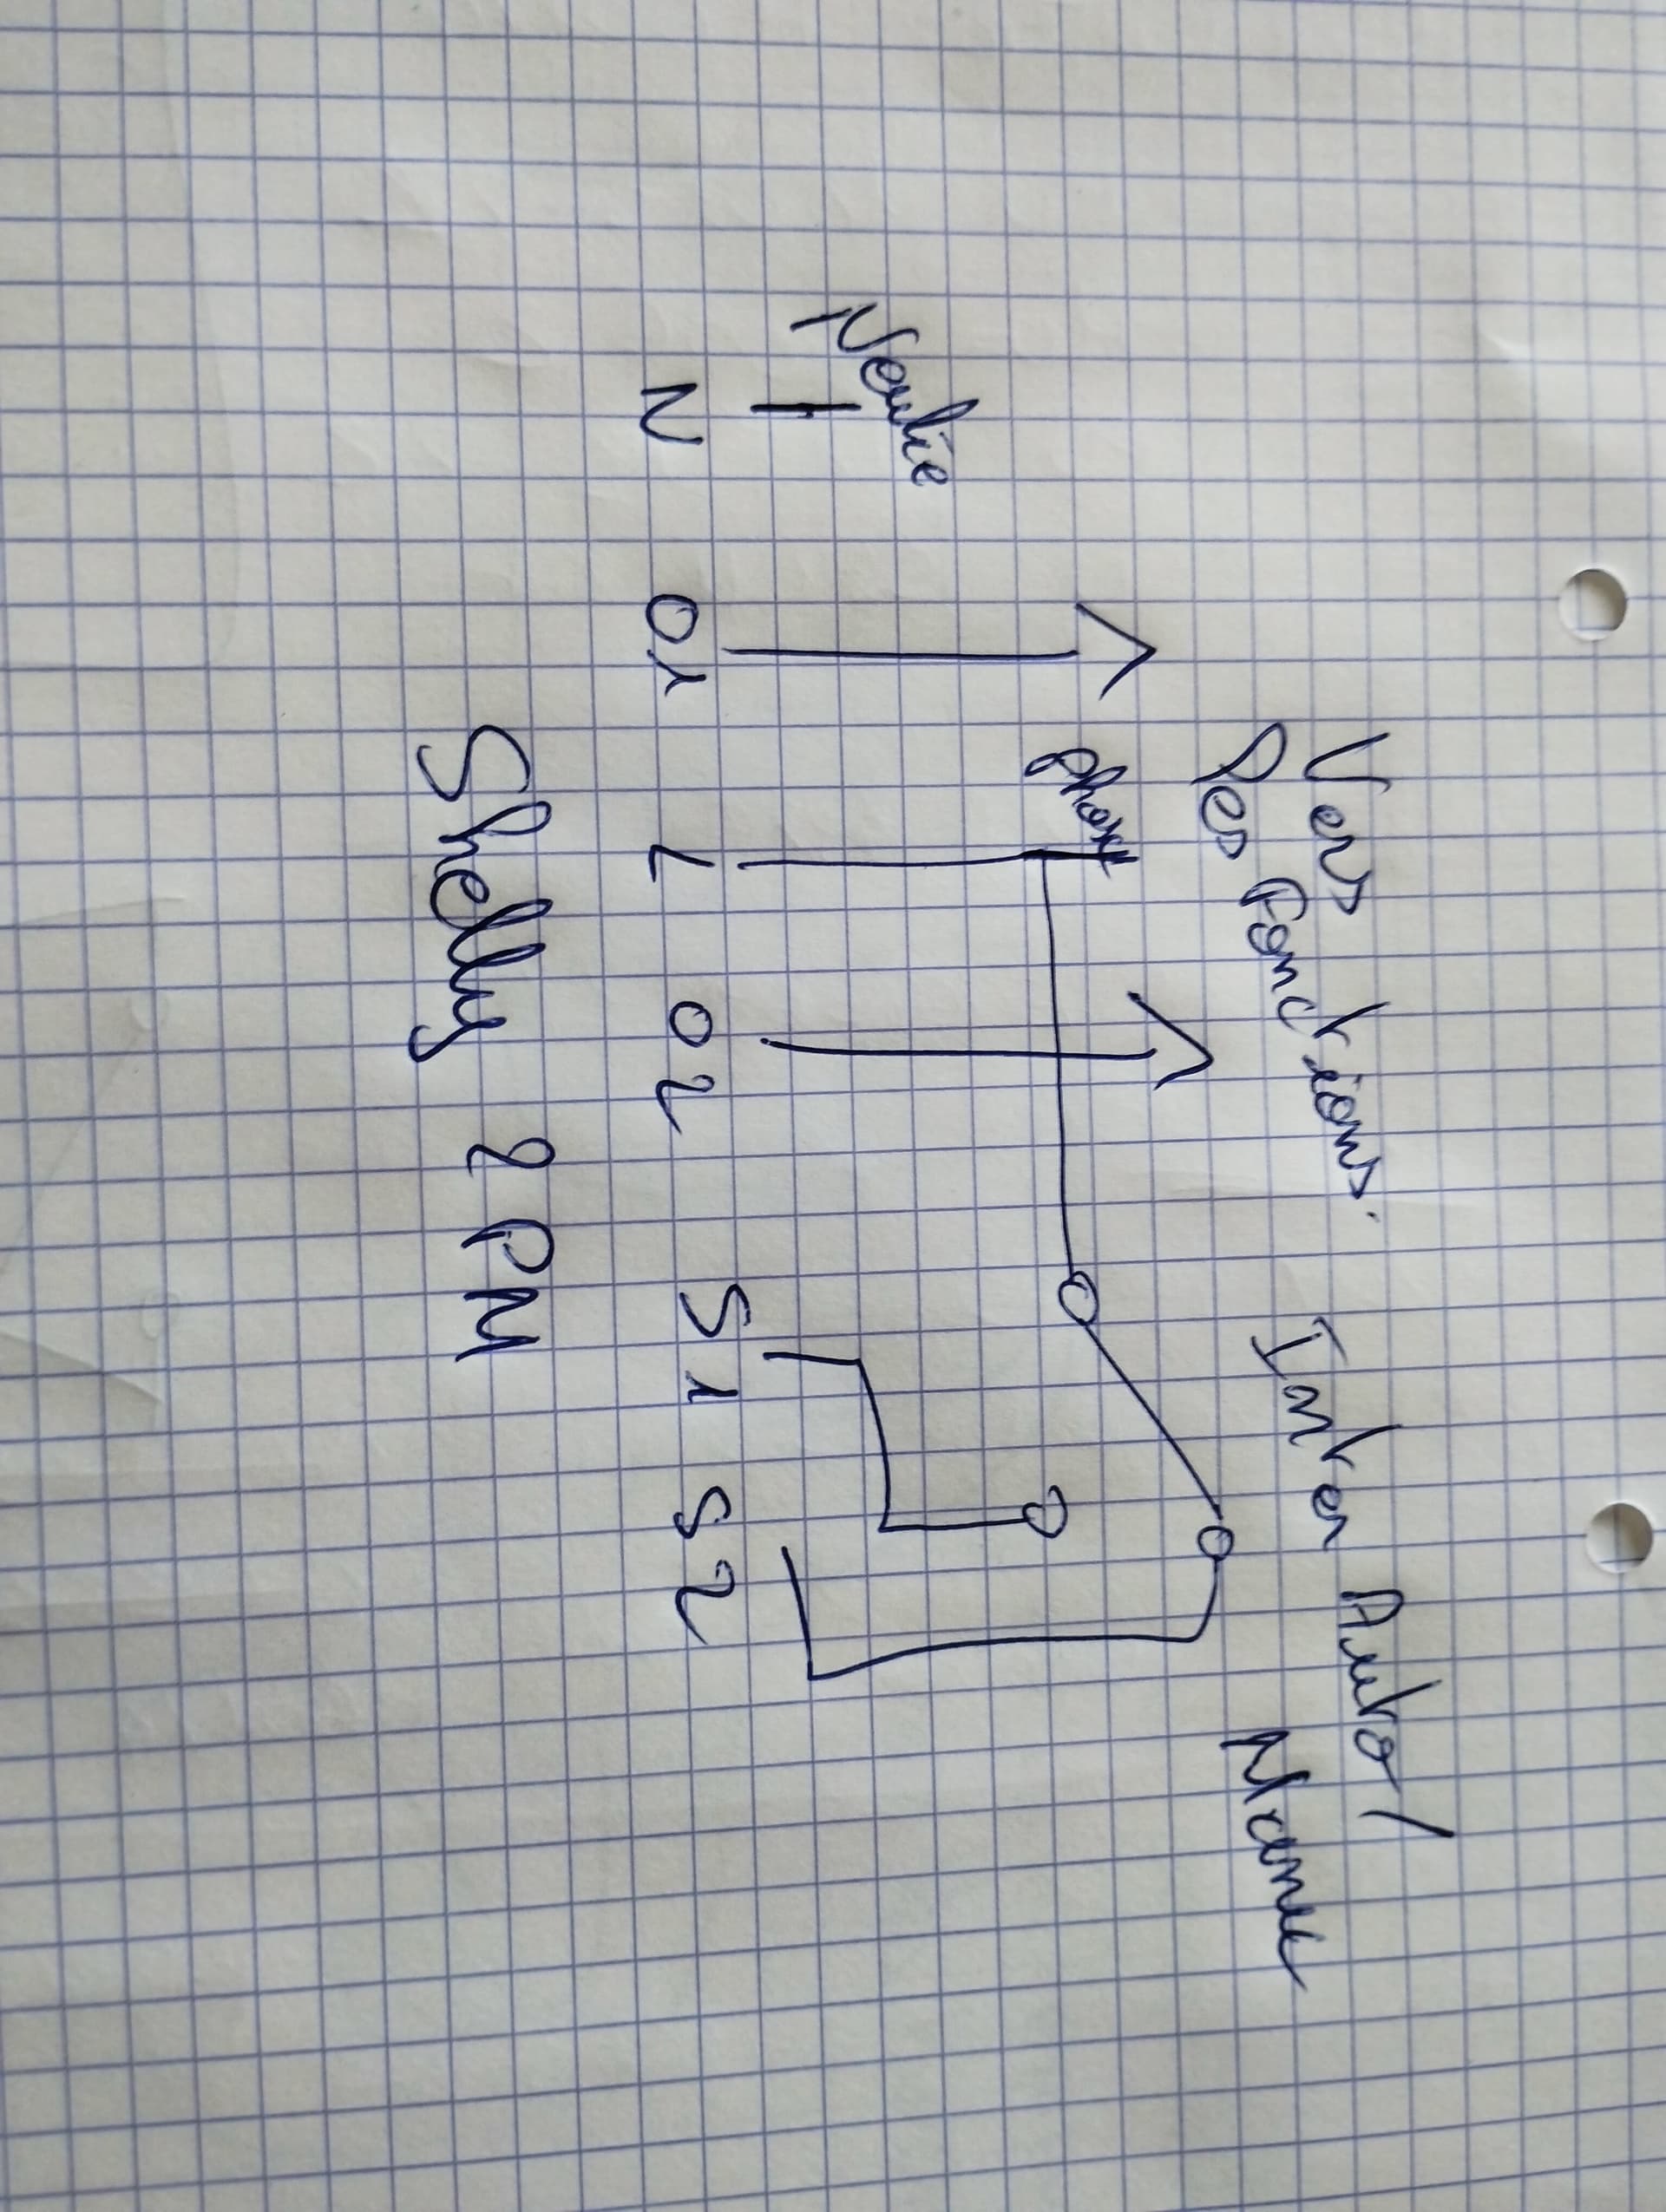 Vers
les Fonctions.
Inter Auto/
Manu
Neutre
phase
N O1 L O2 S1 S2
Shelly 2 PM